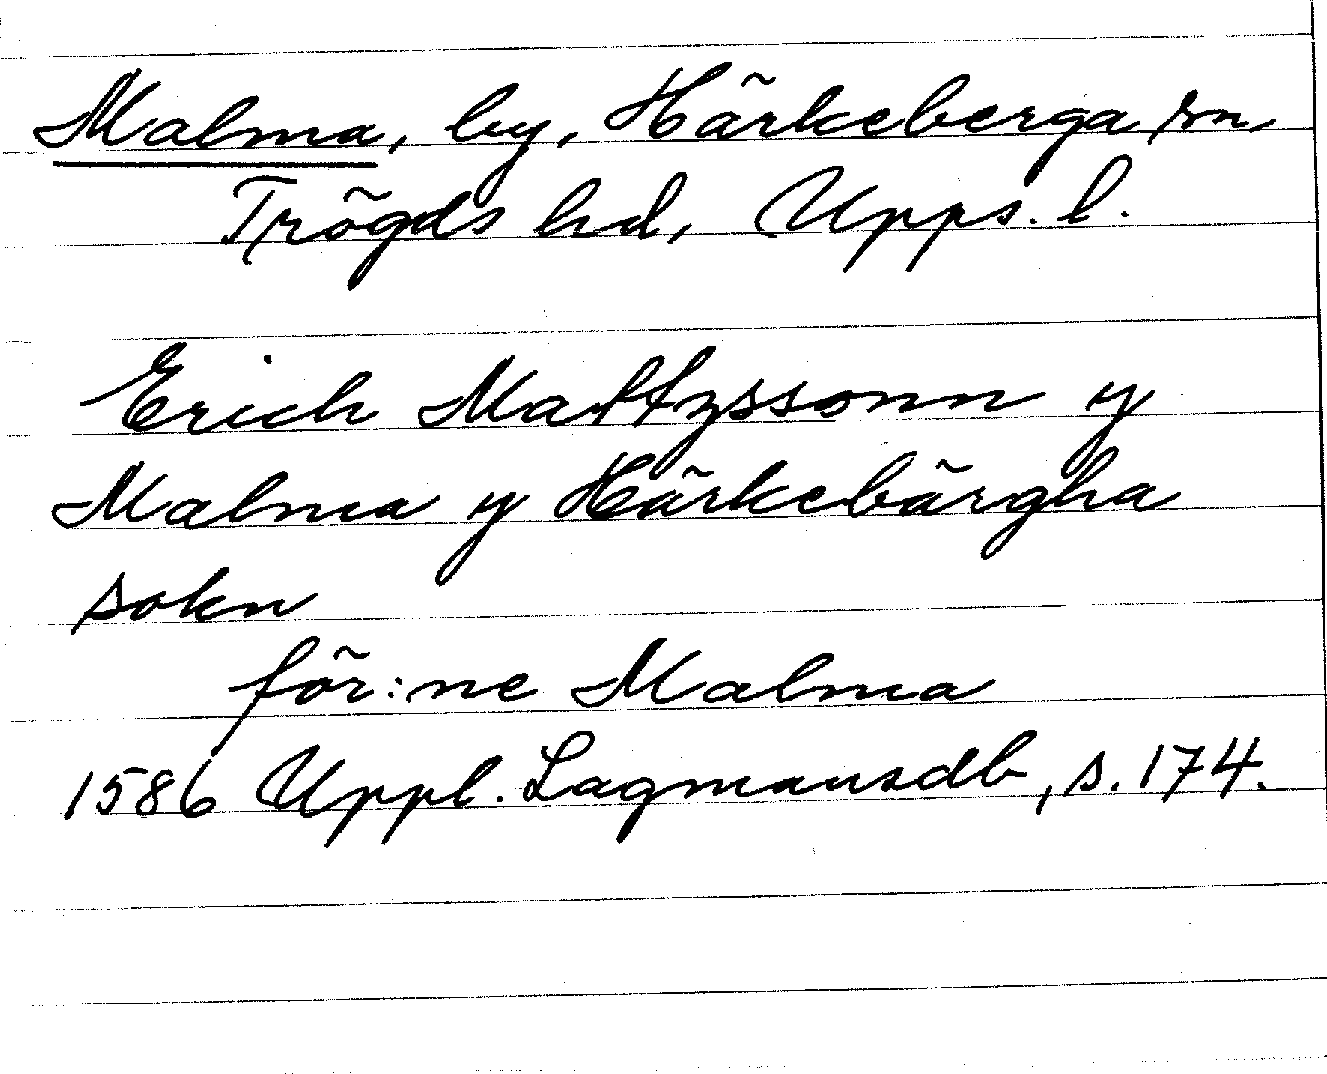 Malma, by, Härkeberga sn,
Trögds hd, Upps. l.
Erich Mattzssonn y
Malma y Härkebärgha
sokn
för:ne Malma
1586 Uppl. Lagmansdb, s. 174.